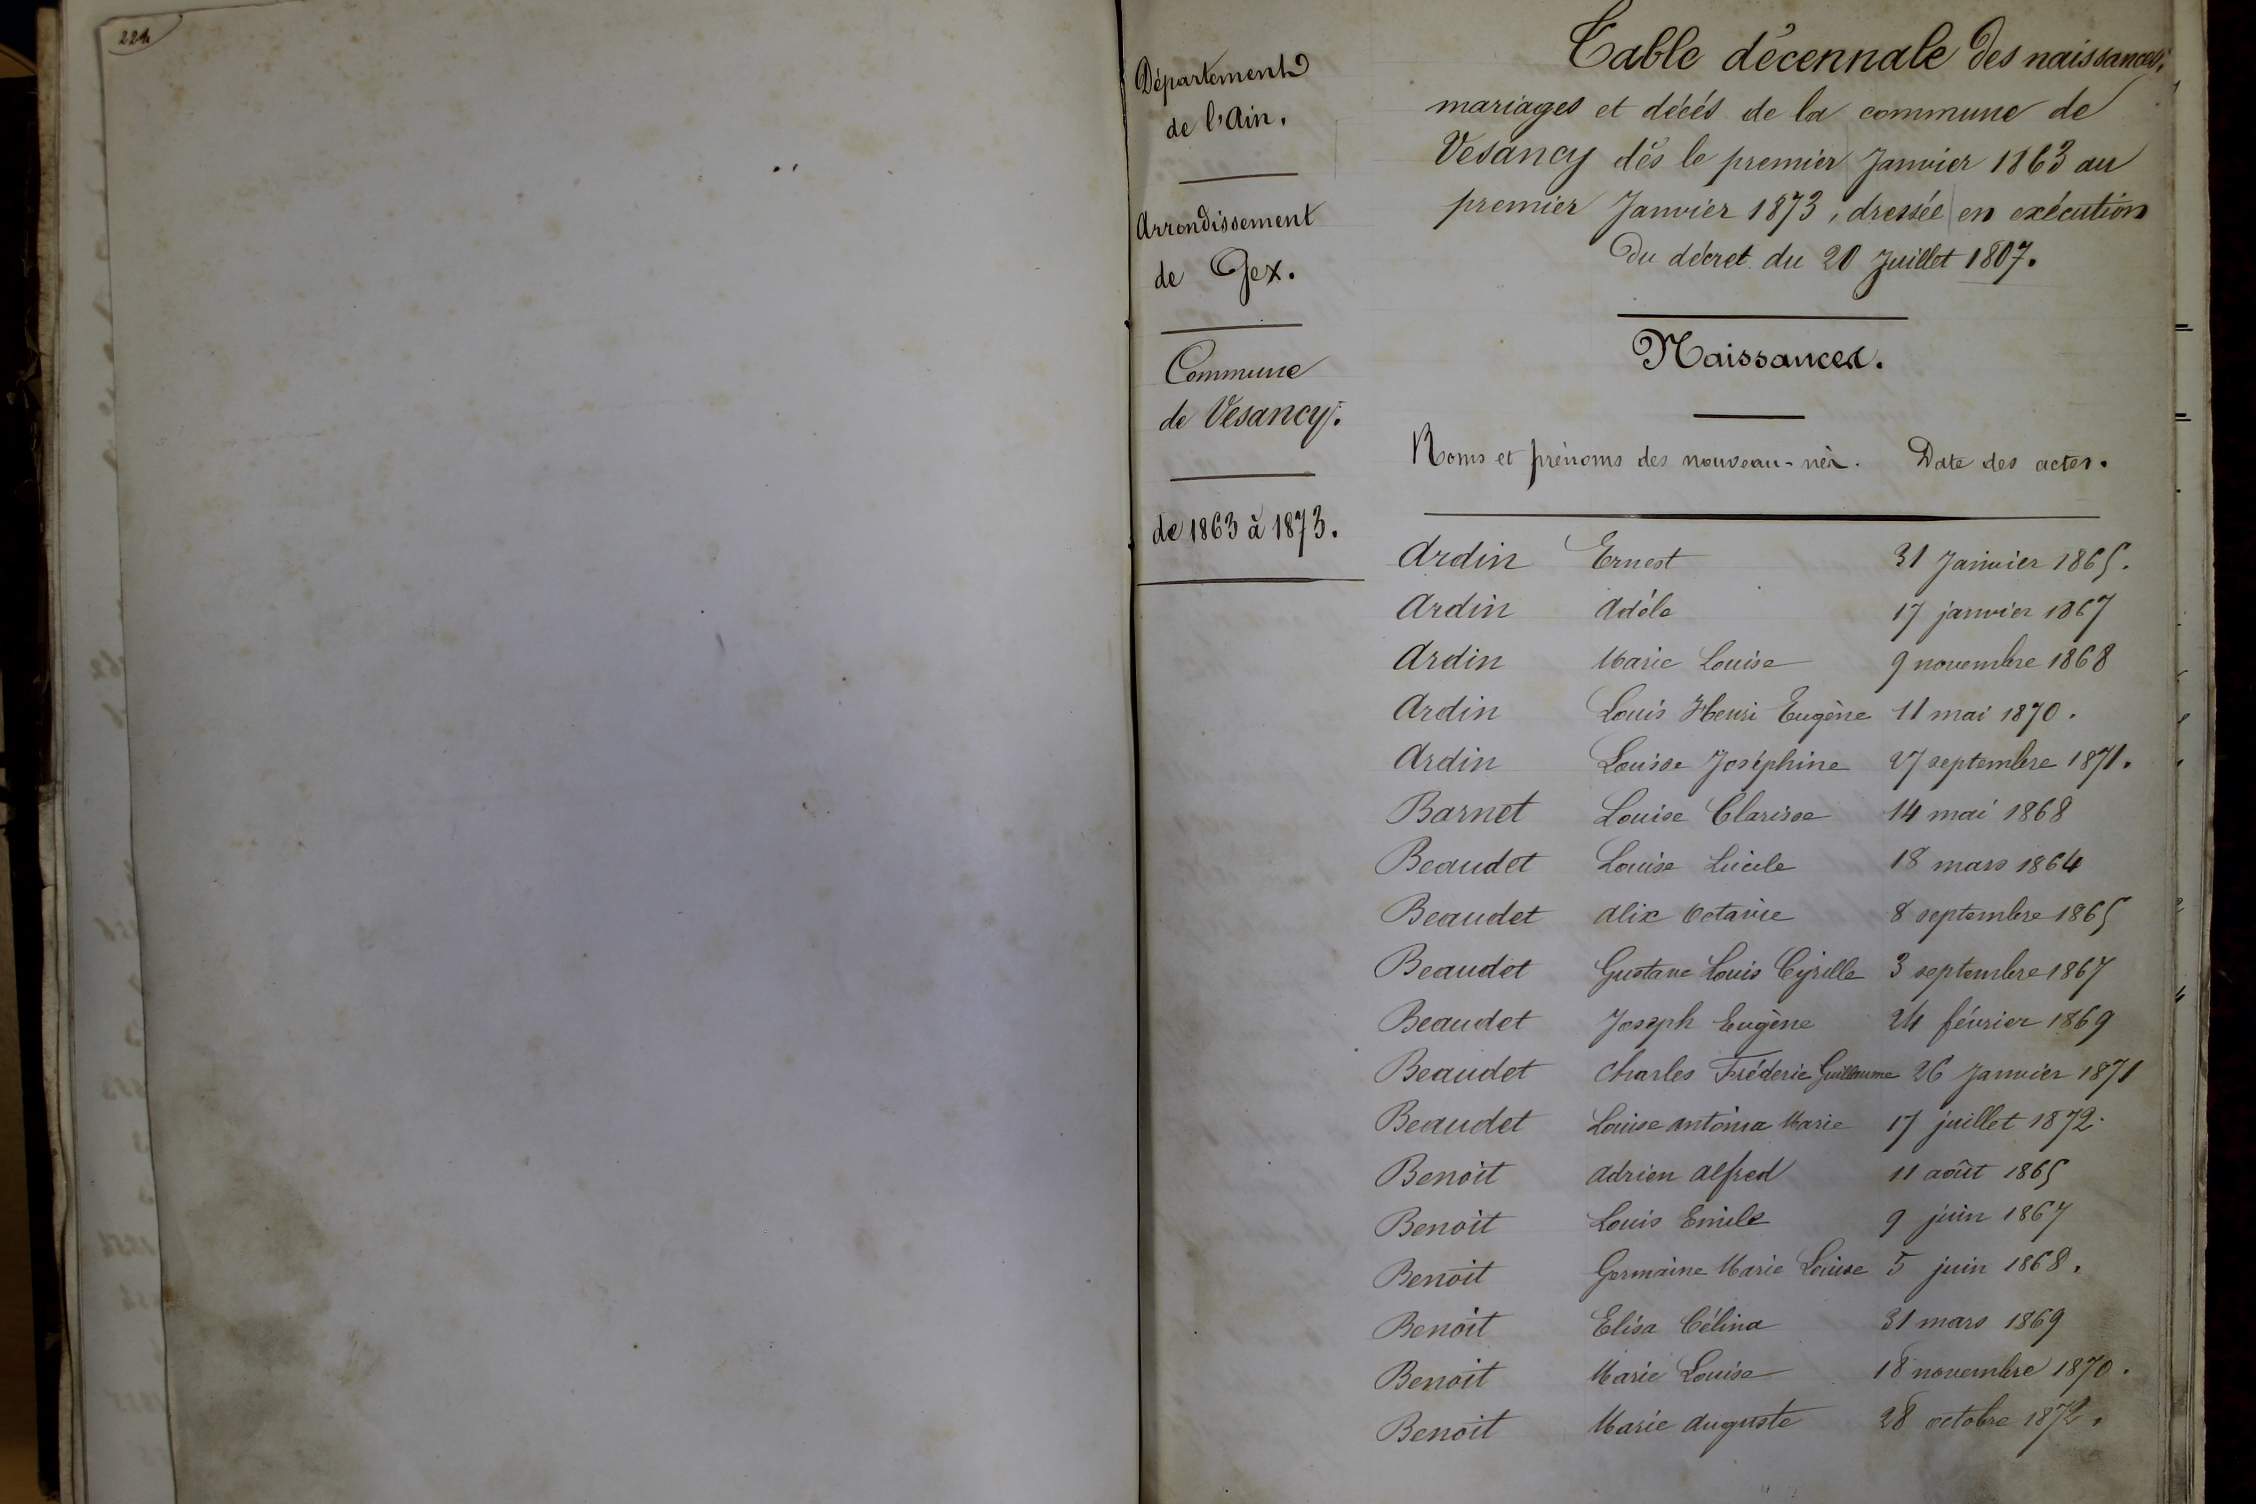 224
Département
de l'Ain.
Arrondissement
de Gex.
Commune
de Vesancy.
de 1863 à 1873.
Table décennale des naissances,
mariages et décés de la commune de
Vesancy dès le premier Janvier 1863 au
premier Janvier 1873, dressée en exécution
du décret du 20 Juillet 1807.
Naissances.
Noms et prénoms des nouveau-nés. Date des actes.
Ardin Ernest 31 Janvier 1865.
Ardin Adèle 17 janvier 1867
Ardin Marie Louise 9 novembre 1868
Ardin Louis Henri Eugène 11 mai 1870.
Ardin Louise Joséphine 27 septembre 1871.
Barnet Louise Clarisse 14 mai 1868
Beaudet Louise Lucile 18 mars 1864
Beaudet Alix Octavie 8 septembre 1865
Beaudet Gustave Louis Cyrille 3 septembre 1867
Beaudet Joseph Eugène 24 février 1869
Beaudet Charles Fréderic Guillaume 26 Janvier 1871
Beaudet Louise Antonia Marie 17 juillet 1872.
Benoit Adrien Alfred 11 août 1865
Benoit Louis Emile 9 juin 1867
Benoit Germaine Marie Louise 5 juin 1868.
Benoit Elisa Célina 31 mars 1869
Benoit Marie Louise 18 novembre 1870.
Benoit Marie Auguste 28 octobre 1872.